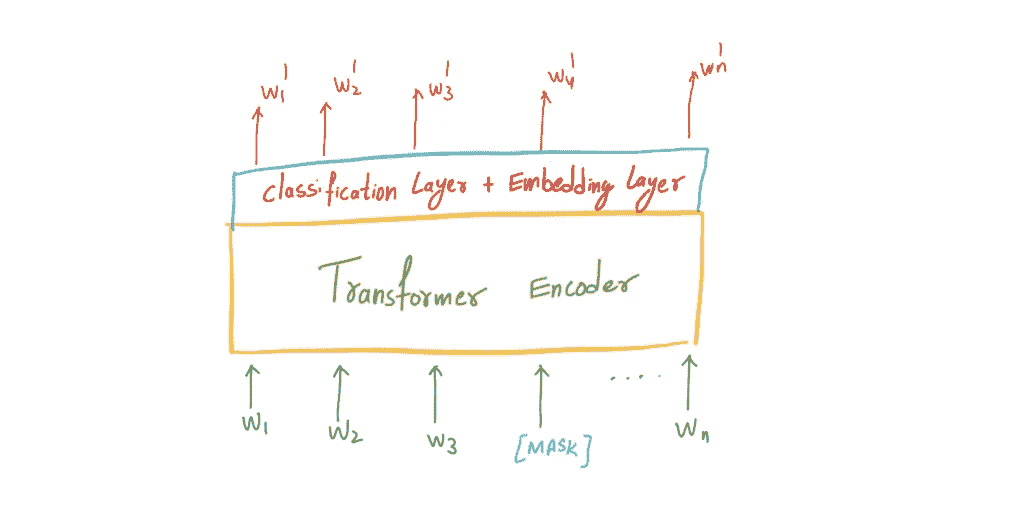 w1' w2' w3' w4' wn'
Classification Layer + Embedding Layer
Transformer Encoder
.....
W1 W2 W3 [MASK] Wn